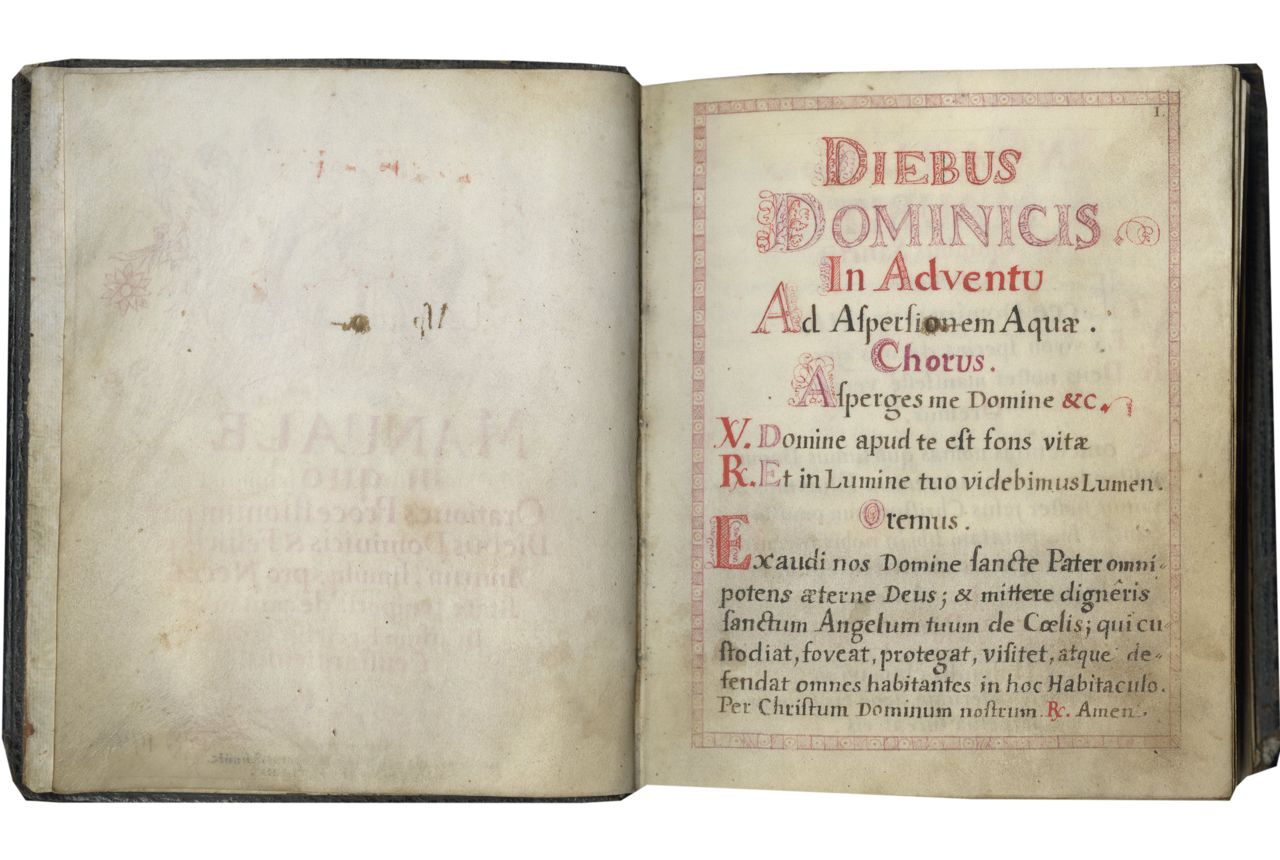 1.
DIEBUS
DOMINICIS
In Adventu
Ad Aſperſionem Aquæ .
Chorus.
Aſperges me Domine &c.
V. Domine apud te eſt fons vitæ
R. Et in Lumine tuo videbimus Lumen.
Oremus.
Exaudi nos Domine ſancte Pater omni-
potens æterne Deus; & mittere dignêris
ſanctum Angelum tuum de Cœlis; qui cu-
ſtodiat, foveat, protegat, viſitet, atque de-
fendat omnes habitantes in hoc Habitaculo.
Per Chriſtum Dominum noſtrum. R. Amen.